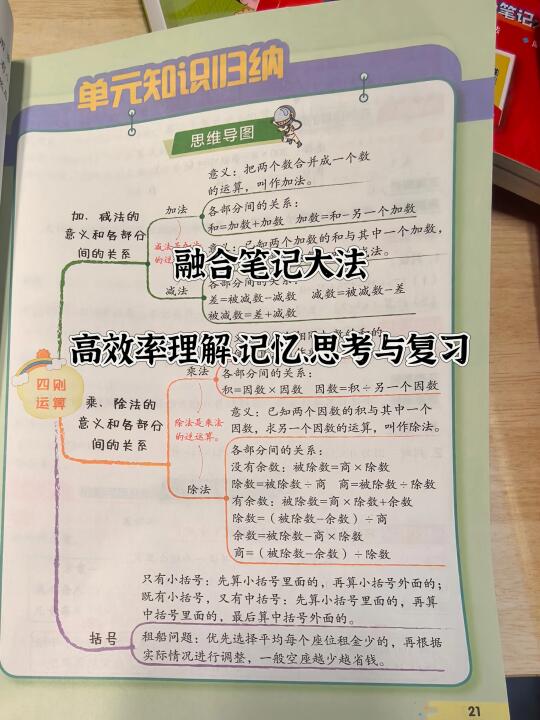 笔记
单元知识归纳
思维导图
意义：把两个数合并成一个数
的运算，叫作加法。
加法
各部分间的关系：
和=加数+加数 加数=和-另一个加数
加、减法的
意义和各部分
间的关系
意义：已知两个加数的和与其中一个加数，
融合笔记大法
减法
各部分间的关系：
差=被减数-减数 减数=被减数-差
被减数=差+减数
高效率理解、记忆、思考与复习
四则
运算
乘法
各部分间的关系：
积=因数×因数 因数=积÷另一个因数
乘、除法的
意义和各部分
间的关系
除法是乘法
的逆运算。
意义：已知两个因数的积与其中一个
因数，求另一个因数的运算，叫作除法。
除法
各部分间的关系：
没有余数：被除数=商×除数
除数=被除数÷商 商=被除数÷除数
有余数：被除数=商×除数+余数
除数=（被除数-余数）÷商
余数=被除数-商×除数
商=（被除数-余数）÷除数
括号
只有小括号：先算小括号里面的，再算小括号外面的；
既有小括号，又有中括号：先算小括号里面的，再算
中括号里面的，最后算中括号外面的。
租船问题：优先选择平均每个座位租金少的，再根据
实际情况进行调整，一般空座越少越省钱。
21